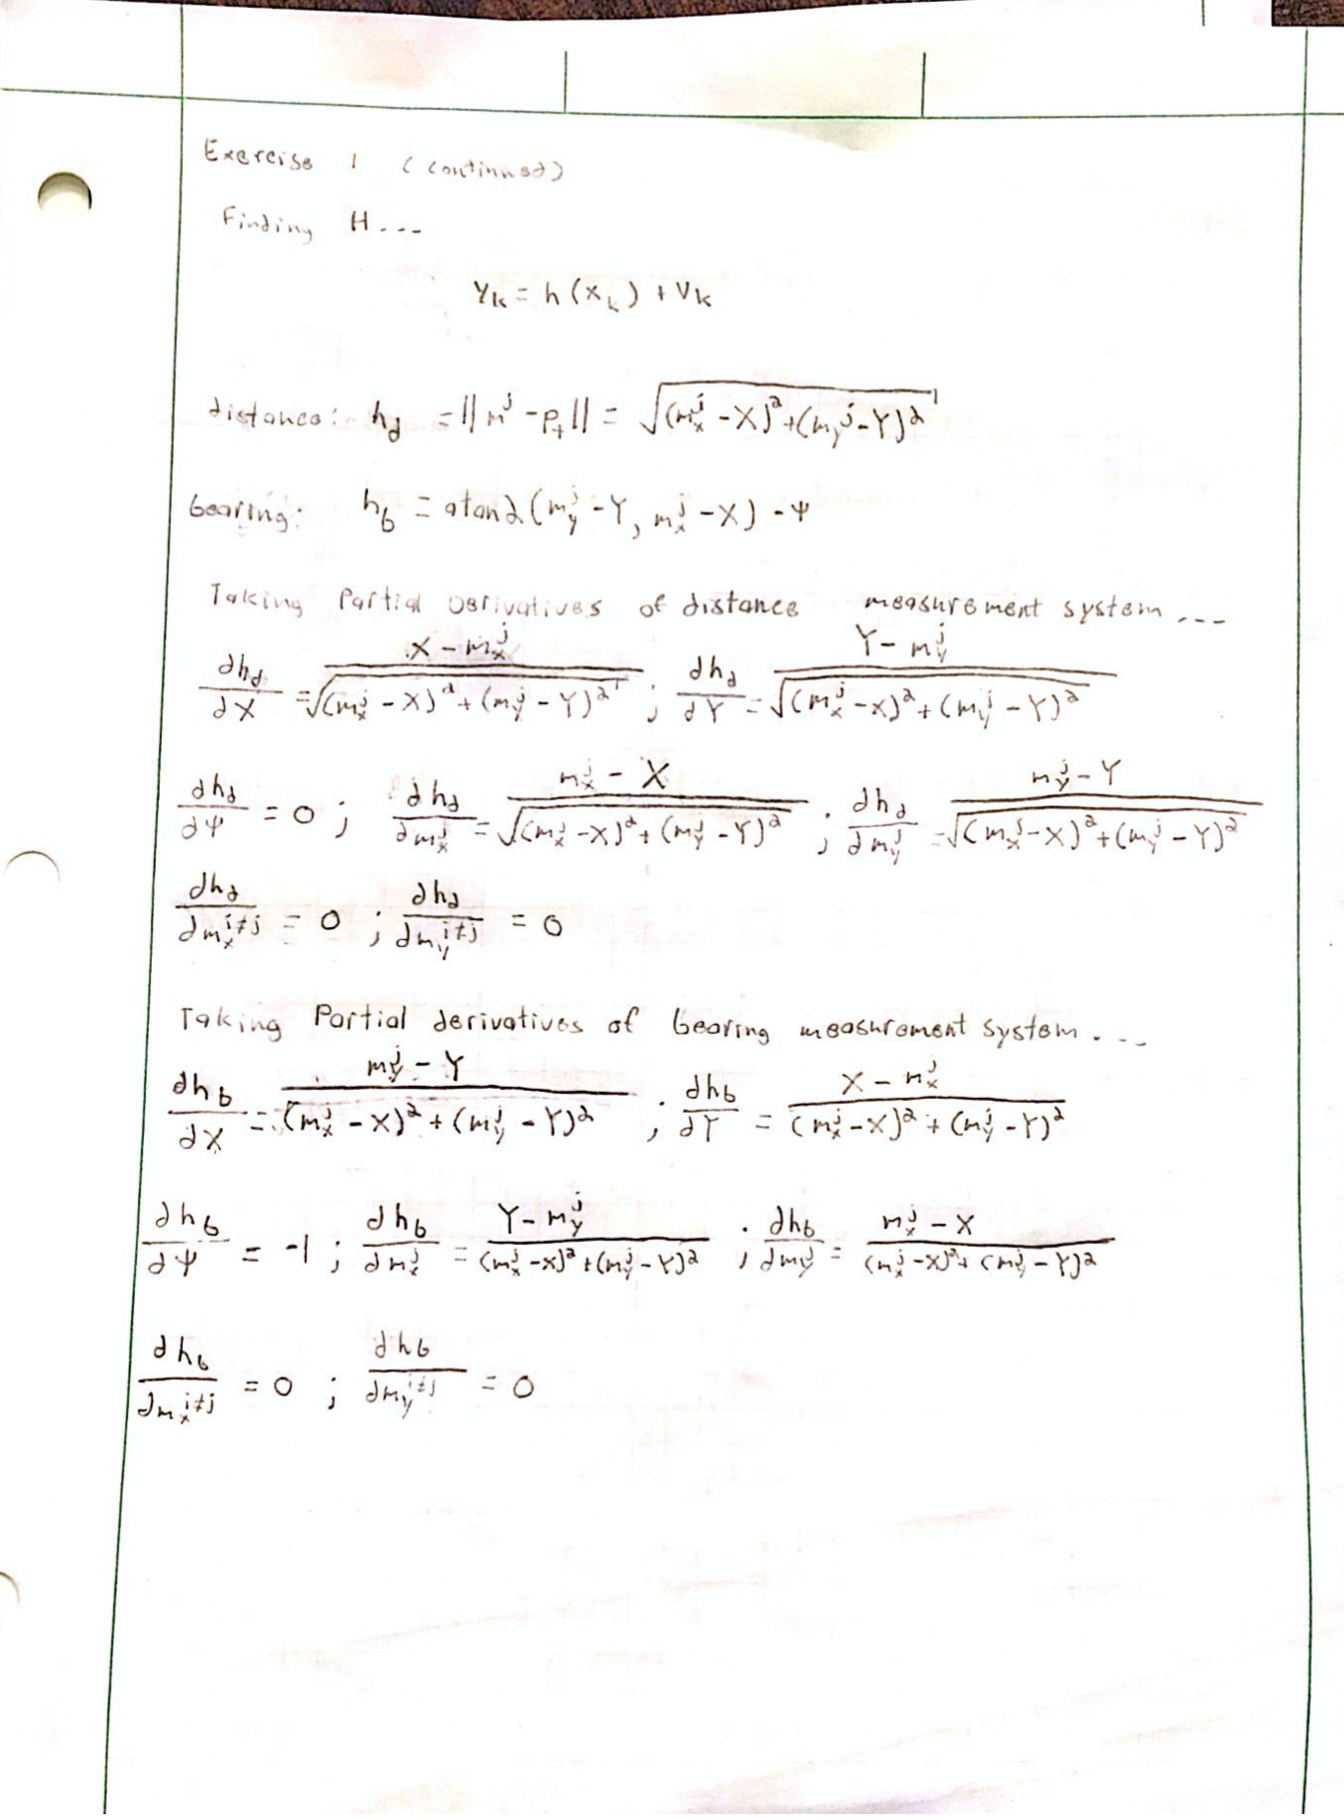 Exercise 1 (continued)
Finding H...
Yk = h(x_k) + Vk
distance: h_d = ||m^j - p_t|| = √((m_x^j - X)^2 + (m_y^j - Y)^2)
bearing: h_b = atan2(m_y^j - Y, m_x^j - X) - Ψ
Taking Partial Derivatives of distance measurement system...
∂h_d/∂X = (X - m_x^j)/√((m_x^j - X)^2 + (m_y^j - Y)^2) ; ∂h_d/∂Y = (Y - m_y^j)/√((m_x^j - X)^2 + (m_y^j - Y)^2)
∂h_d/∂Ψ = 0 ; ∂h_d/∂m_x^j = (m_x^j - X)/√((m_x^j - X)^2 + (m_y^j - Y)^2) ; ∂h_d/∂m_y^j = (m_y^j - Y)/√((m_x^j - X)^2 + (m_y^j - Y)^2)
∂h_d/∂m_x^{i≠j} = 0 ; ∂h_d/∂m_y^{i≠j} = 0
Taking Partial derivatives of bearing measurement system...
∂h_b/∂X = (m_y^j - Y)/((m_x^j - X)^2 + (m_y^j - Y)^2) ; ∂h_b/∂Y = (X - m_x^j)/((m_x^j - X)^2 + (m_y^j - Y)^2)
∂h_b/∂Ψ = -1 ; ∂h_b/∂m_x^j = (Y - m_y^j)/((m_x^j - X)^2 + (m_y^j - Y)^2) ; ∂h_b/∂m_y^j = (m_x^j - X)/((m_x^j - X)^2 + (m_y^j - Y)^2)
∂h_b/∂m_x^{i≠j} = 0 ; ∂h_b/∂m_y^{i≠j} = 0